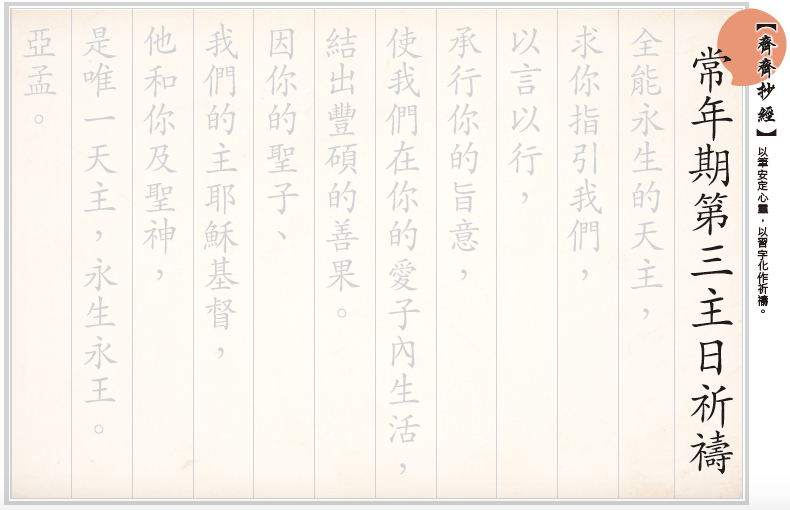 【齋齋抄經】以筆安定心靈，以習字化作祈禱。
常年期第三主日祈禱
全能永生的天主，
求你指引我們，
以言以行，
承行你的旨意，
使我們在你的愛子內生活，
結出豐碩的善果。
因你的聖子、
我們的主耶穌基督，
他和你及聖神，
是唯一天主，永生永王。
亞孟。